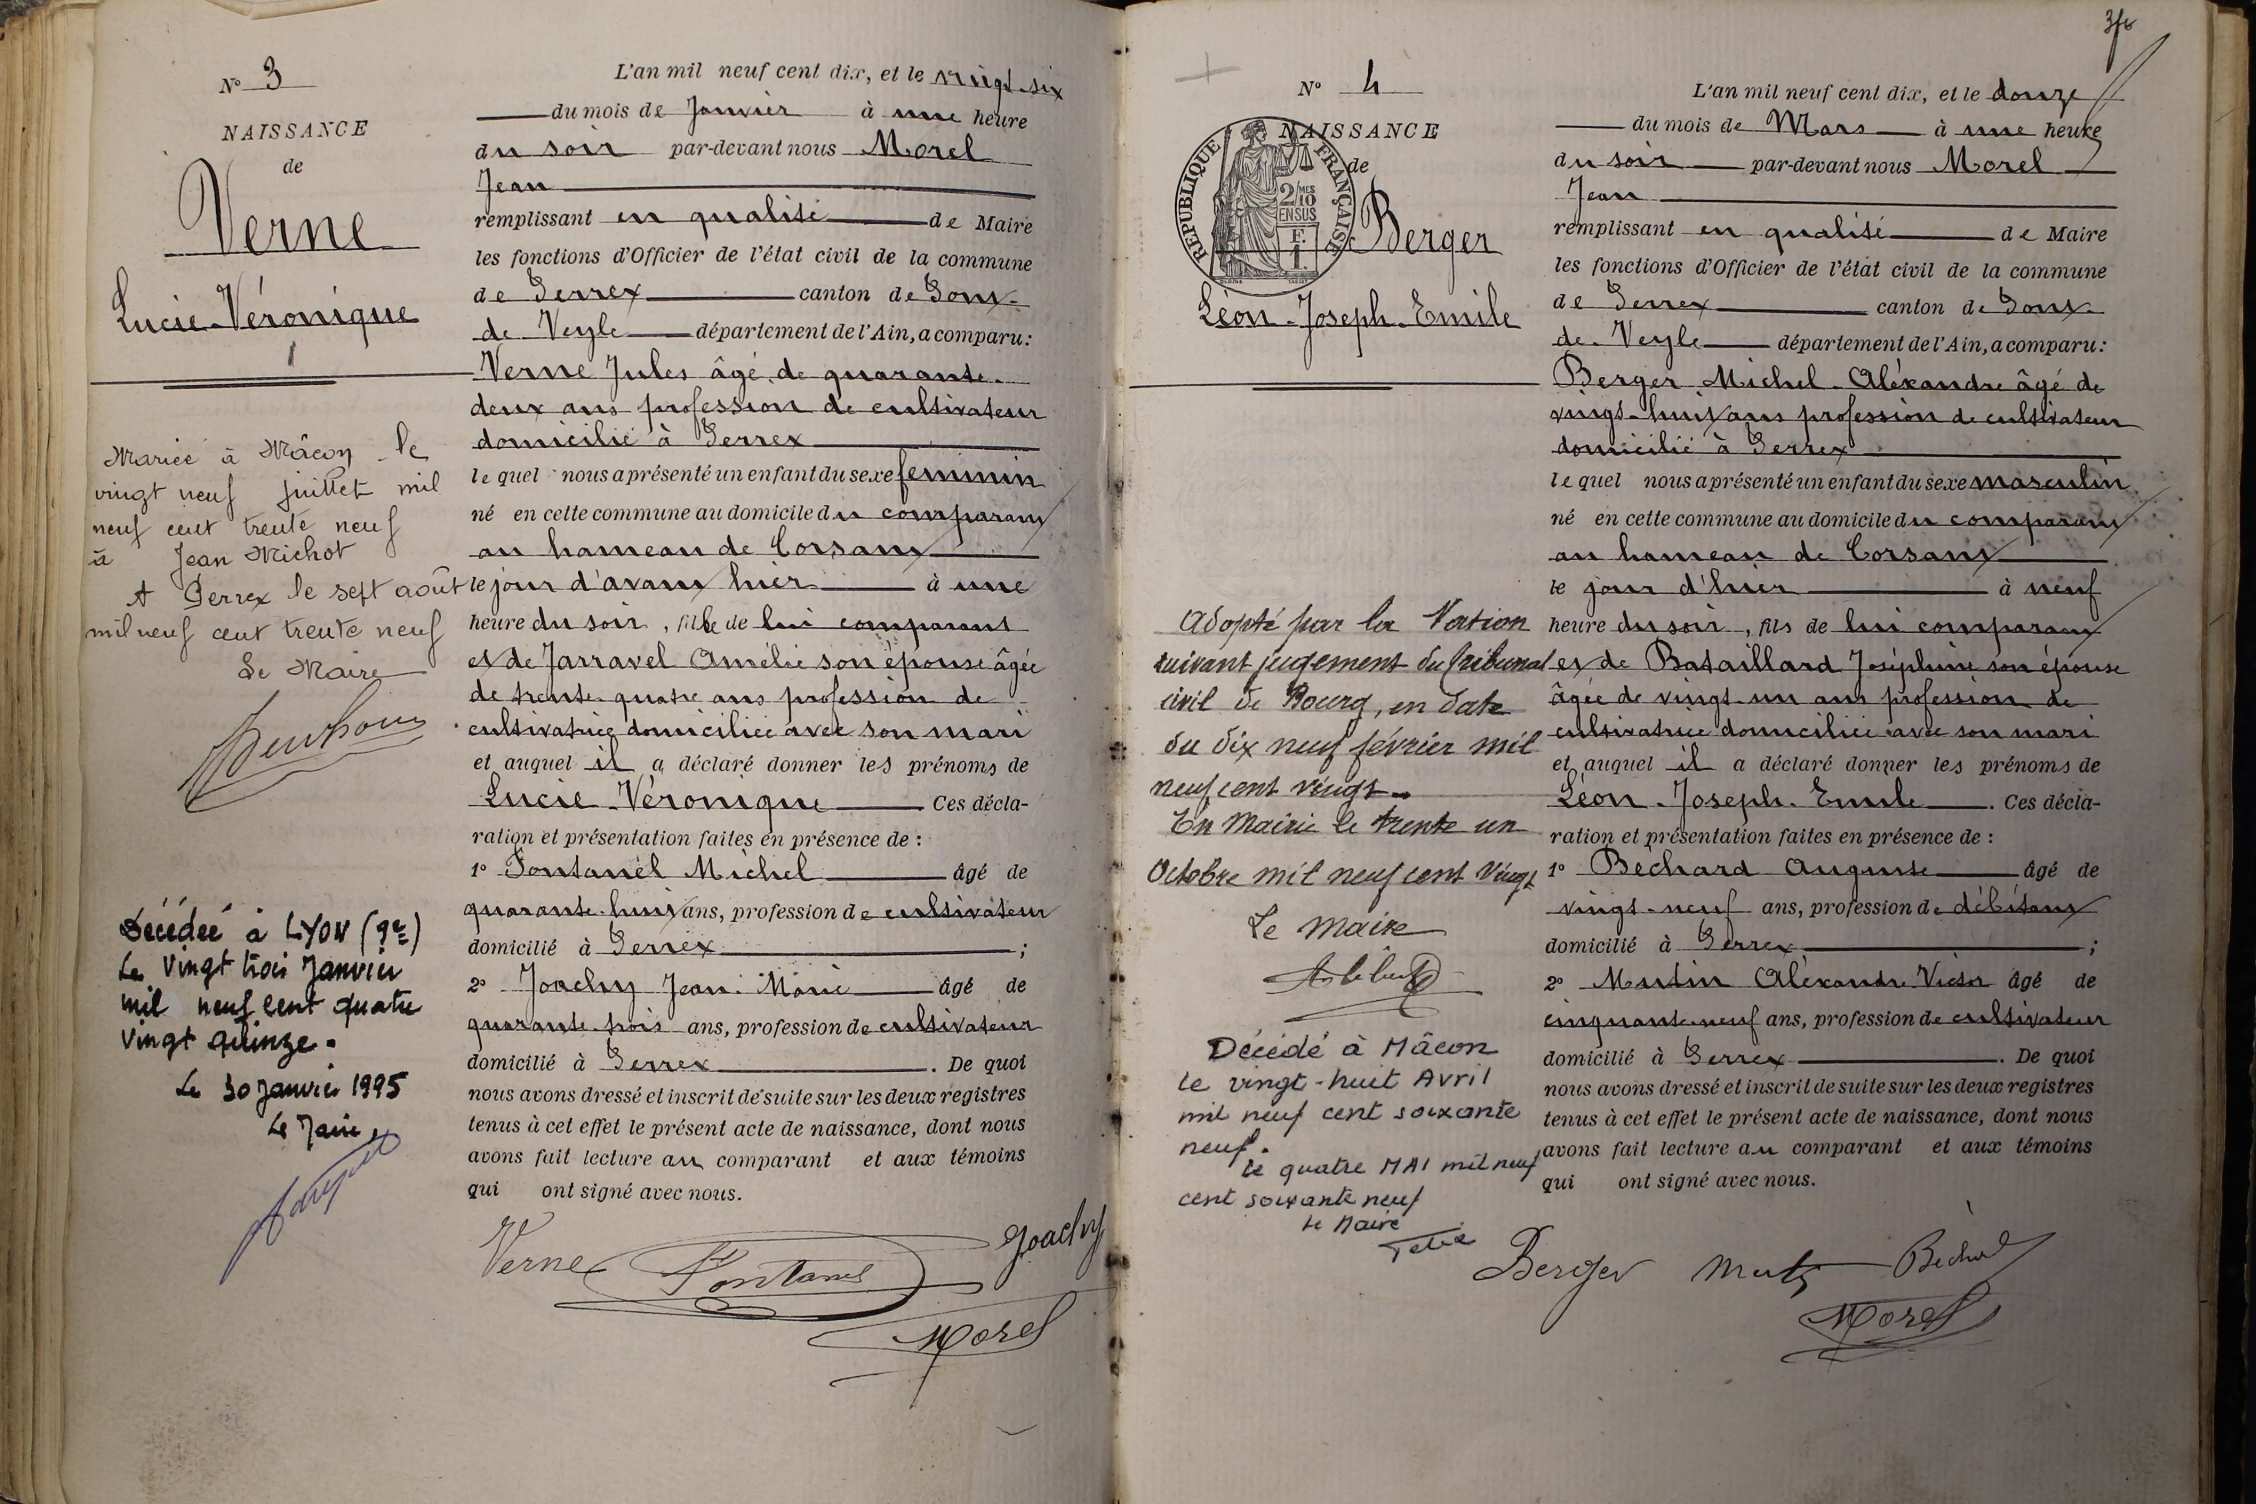 No 3
NAISSANCE
de
Verne
Lucie-Véronique
Mariée à Mâcon le
vingt neuf juillet mil
neuf cent trente neuf
à Jean Michot
A Perrex le sept août
mil neuf cent trente neuf
Le Maire
Décédée à LYON (9e)
Le Vingt trois Janvier
mil neuf cent quatre
Vingt quinze.
Le 30 Janvier 1995
Le Maire
L'an mil neuf cent dix, et le vingt-six
du mois de Janvier à une heure
du soir par-devant nous Morel
Jean
remplissant en qualité de Maire
les fonctions d'Officier de l'état civil de la commune
de Perrex canton de Pont-
de Veyle département de l'Ain, a comparu:
Verne Jules âgé de quarante-
deux ans profession de cultivateur
domicilié à Perrex
le quel nous a présenté un enfant du sexe feminin
né en cette commune au domicile du comparant
au hameau de Corsant
le jour d'avant hier à une
heure du soir, fille de lui comparant
et de Jarravel Amélie son épouse âgée
de trente-quatre ans profession de
cultivatrice domiciliée avec son mari
et auquel il a déclaré donner les prénoms de
Lucie-Véronique Ces décla-
ration et présentation faites en présence de :
1o Fontanel Michel âgé de
quarante-huit ans, profession de cultivateur
domicilié à Perrex ;
2o Joachy Jean-Marie âgé de
quarante-trois ans, profession de cultivateur
domicilié à Perrex . De quoi
nous avons dressé et inscrit de suite sur les deux registres
tenus à cet effet le présent acte de naissance, dont nous
avons fait lecture au comparant et aux témoins
qui ont signé avec nous.
Verne Fontanel Joachy
Morel
No 4
NAISSANCE
de
REPUBLIQUE FRANÇAISE
2/10MES
EN SUS
F.
1
Berger
Léon-Joseph-Emile
Adopté par la Nation
suivant jugement du tribunal
civil de Bourg, en date
du dix neuf février mil
neuf cent vingt
En Mairie le trente un
Octobre mil neuf cent Vingt
Le Maire
Décédé à Mâcon
le vingt-huit Avril
mil neuf cent soixante
neuf.
le quatre MAI mil neuf
cent soixante neuf
Le Maire
L'an mil neuf cent dix, et le douze
du mois de Mars à une heure
du soir par-devant nous Morel
Jean
remplissant en qualité de Maire
les fonctions d'Officier de l'état civil de la commune
de Perrex canton de Pont-
de-Veyle département de l'Ain, a comparu:
Berger Michel-Aléxandre âgé de
vingt-huit ans profession de cultivateur
domicilié à Perrex
le quel nous a présenté un enfant du sexe masculin
né en cette commune au domicile du comparant
au hameau de Corsant
le jour d'hier à neuf
heure du soir, fils de lui comparant
et de Bataillard Joséphine son épouse
âgée de vingt-un ans profession de
cultivatrice domiciliée avec son mari
et auquel il a déclaré donner les prénoms de
Léon-Joseph-Emile . Ces décla-
ration et présentation faites en présence de :
1o Béchard Auguste âgé de
vingt-neuf ans, profession de débitant
domicilié à Perrex ;
2o Alèxandre Victor âgé de
cinquante-neuf ans, profession de cultivateur
domicilié à Perrex . De quoi
nous avons dressé et inscrit de suite sur les deux registres
tenus à cet effet le présent acte de naissance, dont nous
avons fait lecture au comparant et aux témoins
qui ont signé avec nous.
Berger Béchard
Morel